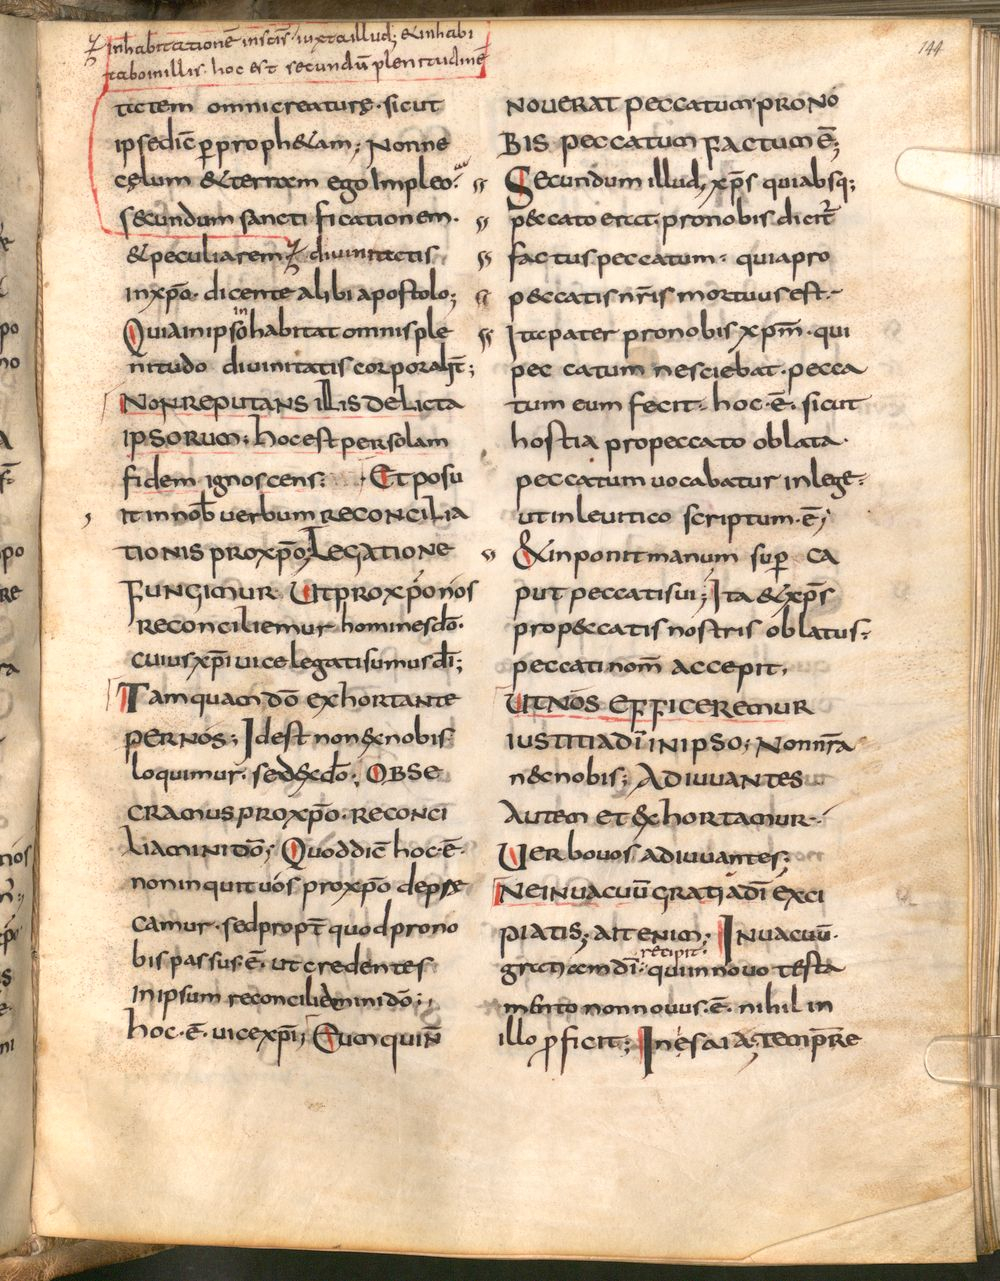 inhabitationē in scīs iuxta illud; & inhabi
tabo in illis. hoc est secundū plenitudinē
144
titem omni creaturę. sicut
ipse dic̄ p̱ proph&am; Nonne
cęlum & terram ego Impleo.
secundum sanctificationem.
& peculiarem divinitatis
in xp̄o. dicente alibi apostolo;
Quia in ipso inhabitat omnis ple
nitudo divinitatis corporalit̄;
NON REPUTANS ILLIS DELICTA
IPSORUM; hoc est per solam
fidem ignoscens: Et posu
it in nob̄ uerbum RECONCILIA
TIONIS PRO xp̄o; LEGATIONE
FUNGIMUR. Ut pro xp̄o nos
reconciliemur homines d̄o.
cuius xp̄i uice legati sumus d̄i;
Tamquam d̄o exhortante
PER NOS; Id est non &nobis
loquimur. sed &x d̄o. OBSE
CRAMUS PRO xp̄o. RECONCI
LIAMINI D̄O; Quod dic̄ hoc .ē.
non inquit uós pro xp̄o depre
camur. sed propt̄ quod pro no
bis passus .ē. ut credentes
In ipsum reconciliemini d̄o;
hoc .ē. uice xp̄i; Eum qui n̄
NOUERAT peccatum. PRO NO
BIS peccatum factum ē;
Secundum illud, xp̄s quia absq;
p&ccato erat. pro nobis dicit̄
factus peccatum. quia pro
p&ccatis nr̄is mortuus est.
Ita pater pro nobis xp̄m. qui
peccatum nesciebat. pecca
tum eum fecit. hoc .ē. sicut
hostia pro peccato oblata.
peccatum uocabatur in lege.
ut in leuitico scriptum .ē;
&inponit manum sup̱ ca
put peccati sui; Ita & xp̄s
pro p&ccatis nostris oblatus.
peccati nom̄ accepit.
UT NOS EFFICEREMUR
IUSTITIA DĪ IN IPSO; Non nr̄a
n&c nobis; Adiuuantes
autem et &xhortamur.
Uerbo uos adiuuantes;
NE IN UACUŪ GRATIĀ DĪ EXCI
PIATIS; AIT ENIM; In uacuū.
gratiam dī recipit. qui in nouo testa
mento non nouus .ē. nihil in
illo p̱ficit; In ęsaia; temp̄re